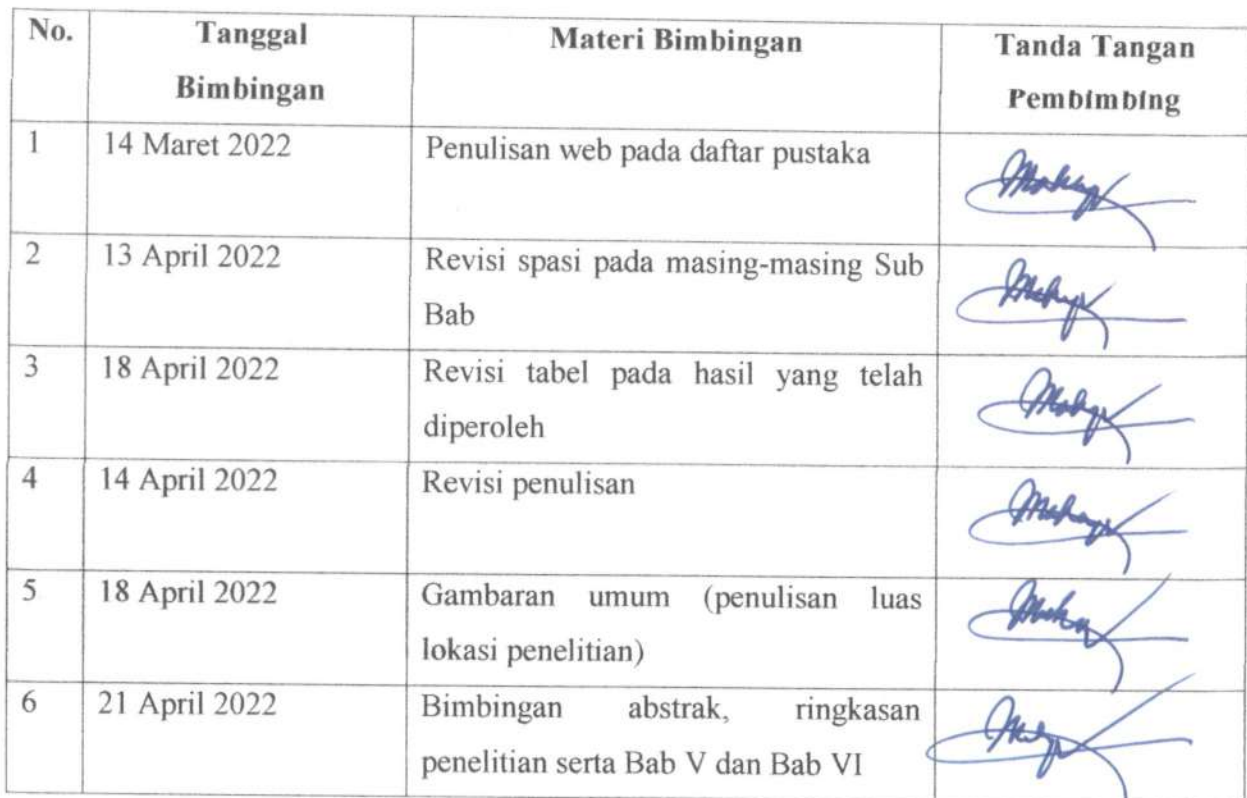 No. Tanggal Materi Bimbingan Tanda Tangan
Bimbingan Pembimbing
1 14 Maret 2022 Penulisan web pada daftar pustaka
2 13 April 2022 Revisi spasi pada masing-masing Sub
Bab
3 18 April 2022 Revisi tabel pada hasil yang telah
diperoleh
4 14 April 2022 Revisi penulisan
5 18 April 2022 Gambaran umum (penulisan luas
lokasi penelitian)
6 21 April 2022 Bimbingan abstrak, ringkasan
penelitian serta Bab V dan Bab VI